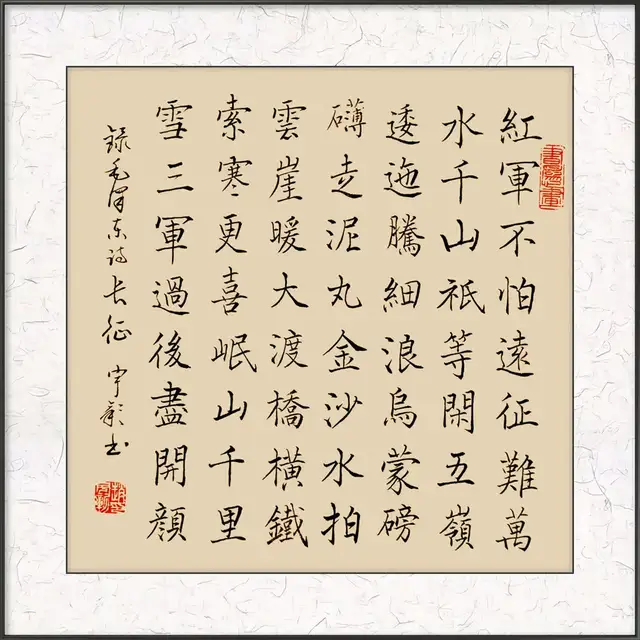 紅軍不怕遠征難萬
水千山祇等閑五嶺
逶迤騰細浪烏蒙磅
礴走泥丸金沙水拍
雲崖暖大渡橋橫鐵
索寒更喜岷山千里
雪三軍過後盡開顏
録毛泽东诗长征 宇书